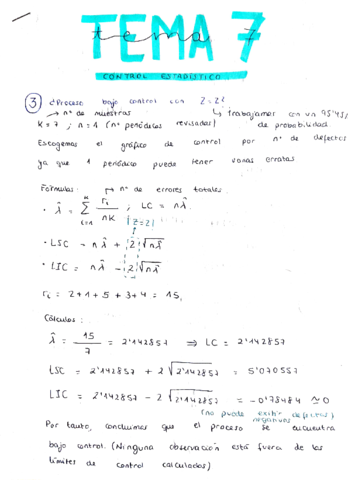 TEMA 7
tema
CONTROL ESTADÍSTICO
③ ¿Proceso bajo control con Z=2?
→ nº de muestras
↳ trabajamos con un 95'45%
K=7 ; n=1 (nº periódicos revisados) de probabilidad
Escogemos el gráfico de control por nº de defectos
ya que 1 periódico puede tener varias erratas
Fórmulas: → nº de errores totales
· λ̂ = Σ ri/nK ; LC = nλ̂
i=1
(Z=2)
· LSC = nλ̂ + 2√nλ̂
· LIC = nλ̂ - 2√nλ̂
ri = 2+1+5+3+4 = 15,
Cálculos:
λ̂ = 15/7 = 2'142857 ⇒ LC = 2'142857
LSC = 2'142857 + 2√2'142857 = 5'070557
LIC = 2'142857 - 2√2'142857 = -0'78484 ≃ 0
(no puede existir defectos
negativos)
Por tanto, concluimos que el proceso se encuentra
bajo control. (Ninguna observación está fuera de los
límites de control calculados)